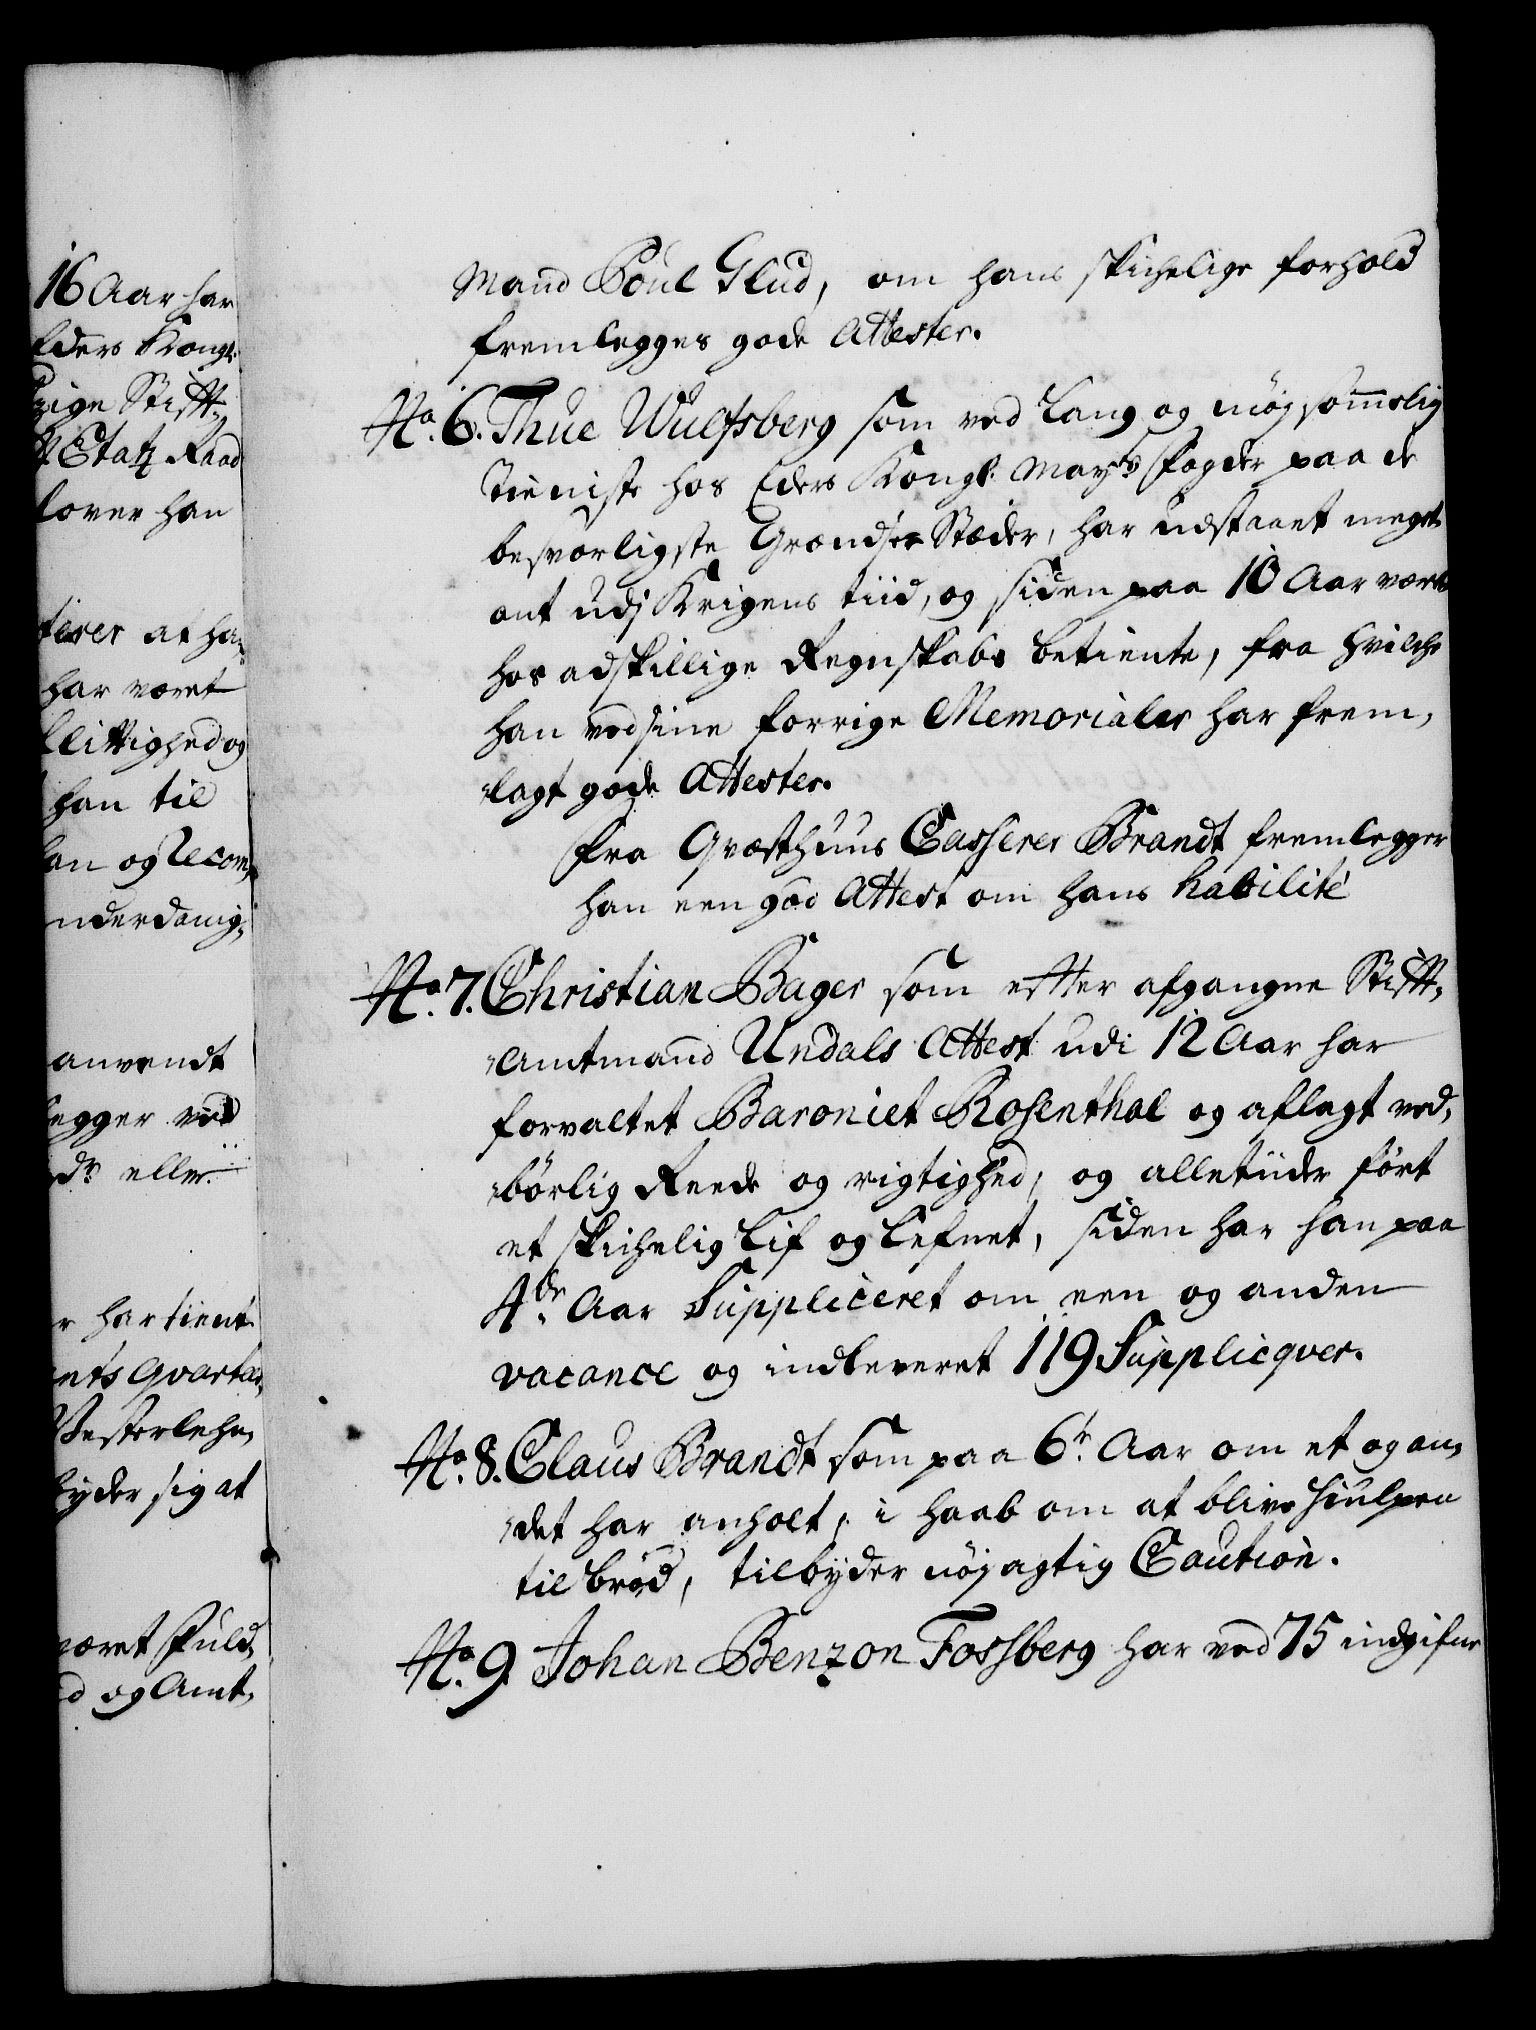 16 Aar har
Eders Kongl:
Stift-
Etatz Raad
lover han
at ha-
har været
flittighed og
han til
og Recom-
underdanig-
anvendt
legger ved
eller
har tient
Qvartal-
Vesterlehn
byder sig at
været Fuld-
og Amt-
Mand Poul Glud, om hans skichelige forhold
fremlegges gode Attester.
No. 6. Thue Wulfsberg som ved lang og møjsommelig
Tieniste hos Eders Kongl. Mayts Fogder paa de
besværligste Grændser Stæder, har udstaaet meget
ont udj Krigens tiid, og siden paa 10 Aar været
hos adskillige Regnskabs betiente, fra hvilche
han ved sine forrige Memorialer har frem-
lagt gode Attester.
Fra Qvæsthuus Casserer Brandt fremlegger
han een god Attest om hans habilité
No. 7. Christian Bager som efter afgangne Stift-
Amtmand Undals Attest udi 12 Aar har
forvaltet Baroniet Rosenthal og aflagt ved-
børlig Reede og rigtighed, og alletiider ført
et skichelig Lif og Lefnet, siden har han paa
4de Aar Suppliceret om een og anden
vacance og indleveret 119 Supplicqver.
No. 8. Claus Brandt som paa 6te Aar om et og an-
det har anholt, i haab om at blive hiulpen
til brød, tilbyder nøjagtig Caution.
No. 9 Johan Benzon Fossberg har ved 75 indgifne